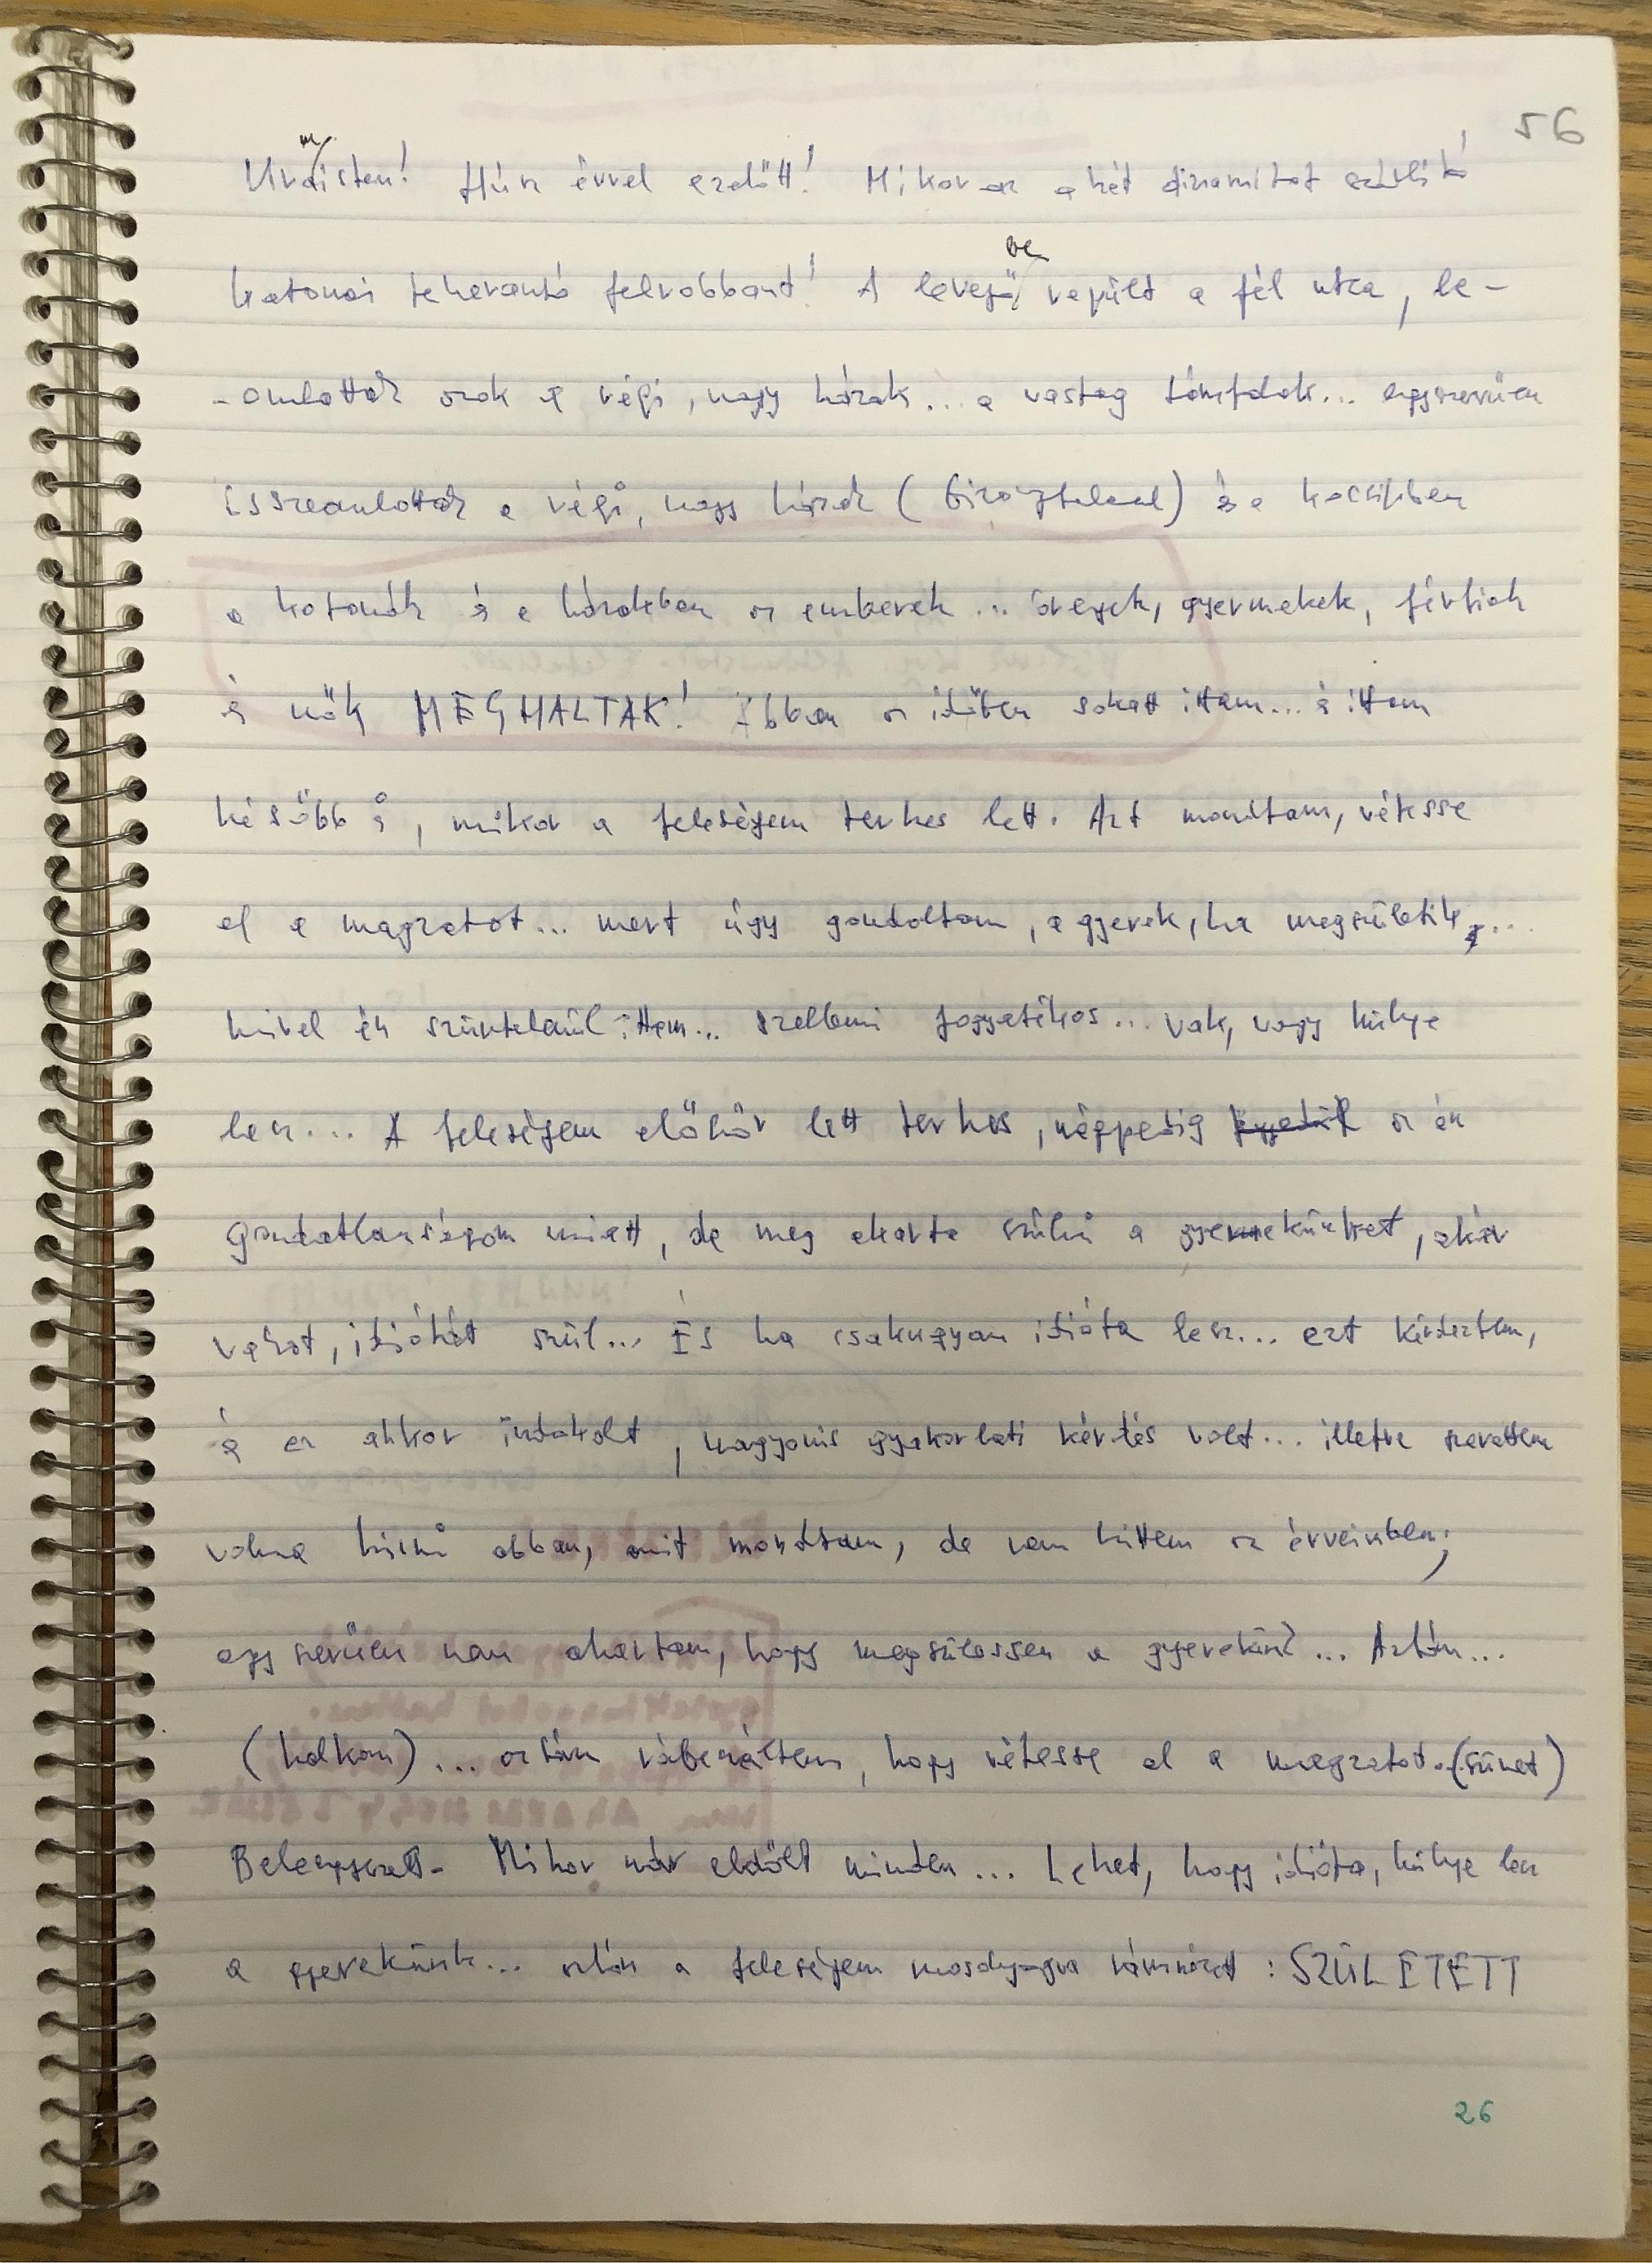 56
Uramisten! Húsz évvel ezelőtt! Mikor az a hét dinamitot szállító
katonai teherautó felrobbant! A levegőbe repült a fél utca, le-
-omlottak azok a régi, nagy házak... a vastag támfalak... egyszerűen
összeomlottak a régi, nagy házak (bizonytalanul) és a kocsikban
a katonák és a házakban az emberek... öregek, gyermekek, férfiak
és nők MEGHALTAK! Ebben az időben sokat ittam... és ittam
később is, mikor a feleségem terhes lett. Azt mondtam, vétesse
el a magzatot... mert úgy gondoltam, a gyerek, ha megszületik,...
mivel én szüntelenül ittam... szellemi fogyatékos... vak, vagy hülye
lesz.... A feleségem először lett terhes, mégpedig az én
gondatlanságom miatt, de meg akarta szülni a gyermekünket, akár
vakot, idiótát szül... És ha csakugyan idióta lesz... ezt kérdeztem,
és ez akkor indokolt, nagyonis gyakorlati kérdés volt... illetve szerettem
volna hinni abban, amit mondtam, de nem hittem az érveimben;
egyszerűen nem akartam, hogy megszülessen a gyerekünk... Aztán...
(halkan)... aztán rábeszéltem, hogy vétesse el a magzatot...(szünet)
Beleegyezett. Mikor már eldőlt minden... Lehet, hogy idióta, hülye lesz
a gyerekünk... aztán a feleségem mosolyogva rámnézett: SZÜLETETT
26